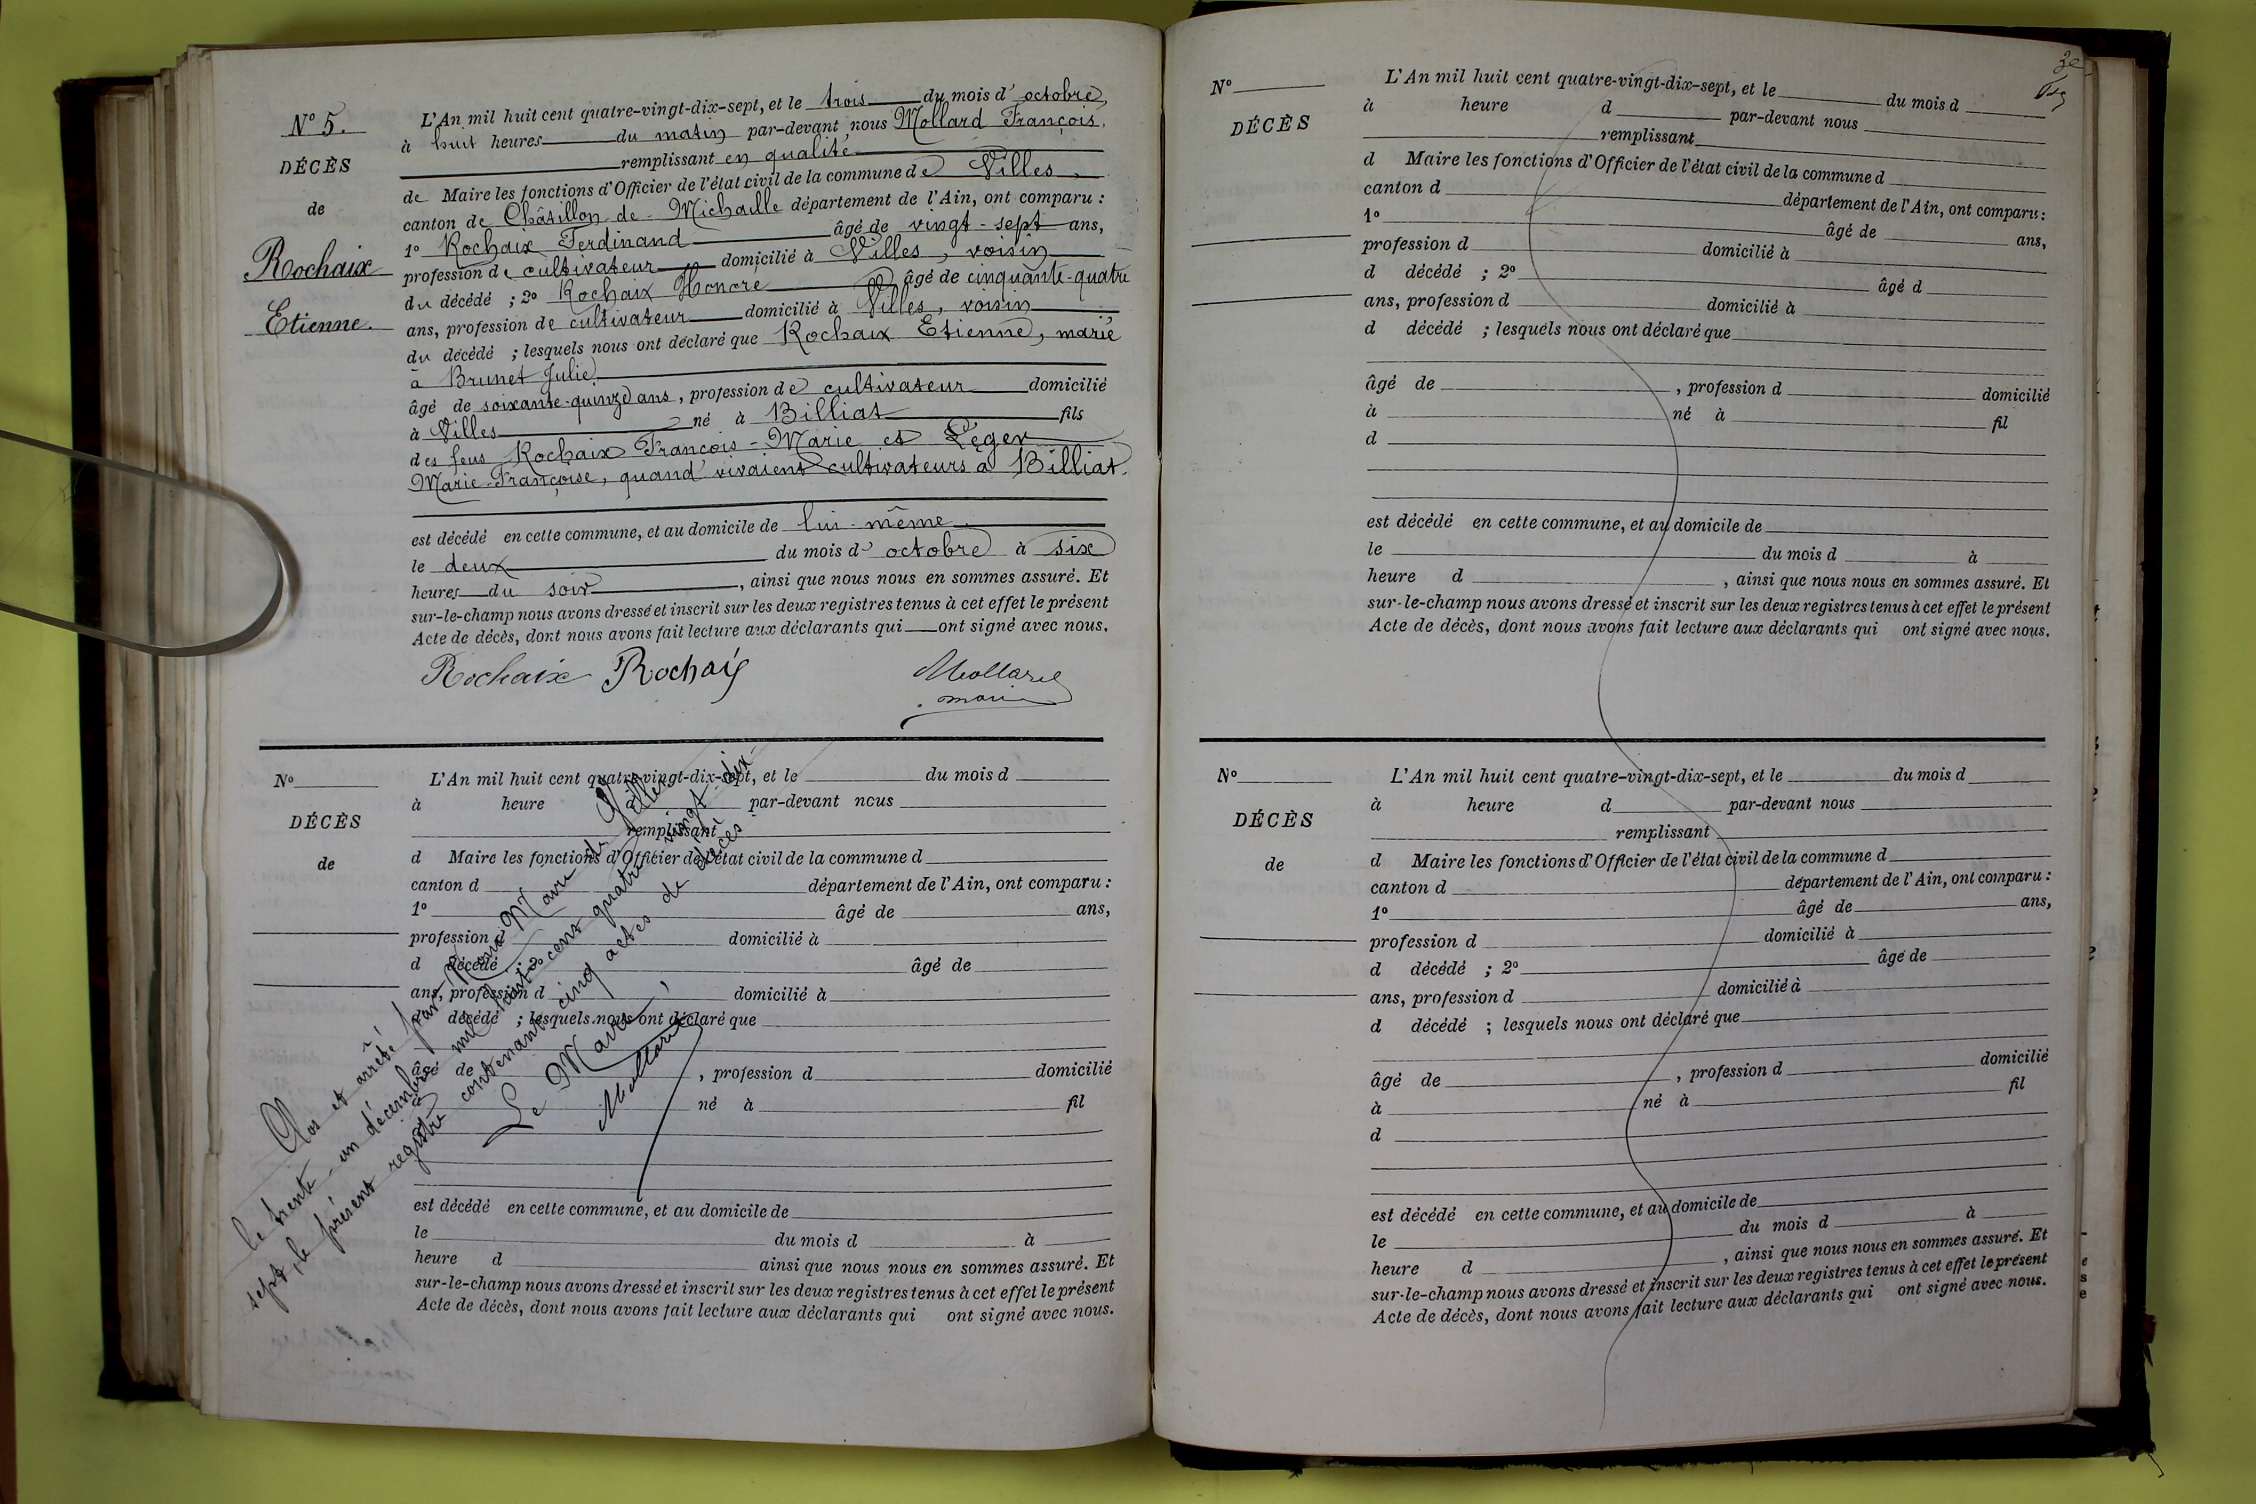 N° 5.
DÉCÈS
de
Rochaix
Etienne.
L'An mil huit cent quatre-vingt-dix-sept, et le trois du mois d'octobre,
à huit heures du matin par-devant nous Mollard François.
remplissant en qualité
de Maire les fonctions d'Officier de l'état civil de la commune de Villes,
canton de Châtillon-de-Michaille département de l'Ain, ont comparu :
1° Rochaix Ferdinand âgé de vingt-sept ans,
profession de cultivateur domicilié à Villes, voisin
du décédé ; 2° Rochaix Honoré âgé de cinquante-quatre
ans, profession de cultivateur domicilié à Villes, voisin
du décédé ; lesquels nous ont déclaré que Rochaix Etienne, marié
à Brunet Julie.
âgé de soixante-quinze ans, profession de cultivateur domicilié
à Villes né à Billiat fils
des feus Rochaix François-Marie et Léger
Marie-Françoise, quand vivaient cultivateurs à Billiat.
est décédé en cette commune, et au domicile de lui-même
le deux du mois d'octobre à six
heures du soir, ainsi que nous nous en sommes assuré. Et
sur-le-champ nous avons dressé et inscrit sur les deux registres tenus à cet effet le présent
Acte de décès, dont nous avons fait lecture aux déclarants qui ont signé avec nous.
Rochaix Rochaix Mollard
maire
N°
DÉCÈS
de
L'An mil huit cent quatre-vingt-dix-sept, et le du mois d
à heure par-devant nous
remplissant
d Maire les fonctions d'Officier de l'état civil de la commune d
canton d département de l'Ain, ont comparu :
1° âgé de ans,
profession d domicilié à
d décédé ; 2° âgé de
ans, profession d domicilié à
d décédé ; lesquels nous ont déclaré que
âgé de , profession d domicilié
à né à fil
d
est décédé en cette commune, et au domicile de
le du mois d à
heure d ainsi que nous nous en sommes assuré. Et
sur-le-champ nous avons dressé et inscrit sur les deux registres tenus à cet effet le présent
Acte de décès, dont nous avons fait lecture aux déclarants qui ont signé avec nous.
Clos et arrêté par Nous Maire de Villes
le trente-un décembre mil huit cent quatre-vingt-dix-
sept, le présent registre contenant cinq actes de décès.
Le Maire,
Mollard
N°
DÉCÈS
L'An mil huit cent quatre-vingt-dix-sept, et le du mois d
à heure d par-devant nous
remplissant
d Maire les fonctions d'Officier de l'état civil de la commune d
canton d département de l'Ain, ont comparu :
1° âgé de ans,
profession d domicilié à
d décédé ; 2° âgé d
ans, profession d domicilié à
d décédé ; lesquels nous ont déclaré que
âgé de , profession d domicilié
à né à fil
d
est décédé en cette commune, et au domicile de
le du mois d à
heure d , ainsi que nous nous en sommes assuré. Et
sur-le-champ nous avons dressé et inscrit sur les deux registres tenus à cet effet le présent
Acte de décès, dont nous avons fait lecture aux déclarants qui ont signé avec nous.
N°
DÉCÈS
de
L'An mil huit cent quatre-vingt-dix-sept, et le du mois d
à heure d par-devant nous
remplissant
d Maire les fonctions d'Officier de l'état civil de la commune d
canton d département de l'Ain, ont comparu :
1° âgé de ans,
profession d domicilié à
d décédé ; 2° âgé de
ans, profession d domicilié à
d décédé ; lesquels nous ont déclaré que
âgé de , profession d domicilié
à né à fil
d
est décédé en cette commune, et au domicile de
le du mois d à
heure d , ainsi que nous nous en sommes assuré. Et
sur-le-champ nous avons dressé et inscrit sur les deux registres tenus à cet effet le présent
Acte de décès, dont nous avons fait lecture aux déclarants qui ont signé avec nous.